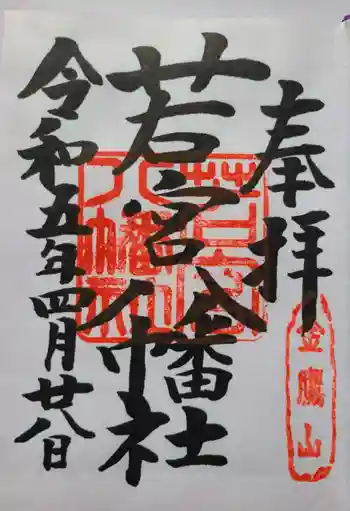 奉拝
金鵰山
若宮八幡社
令和五年四月廿八日